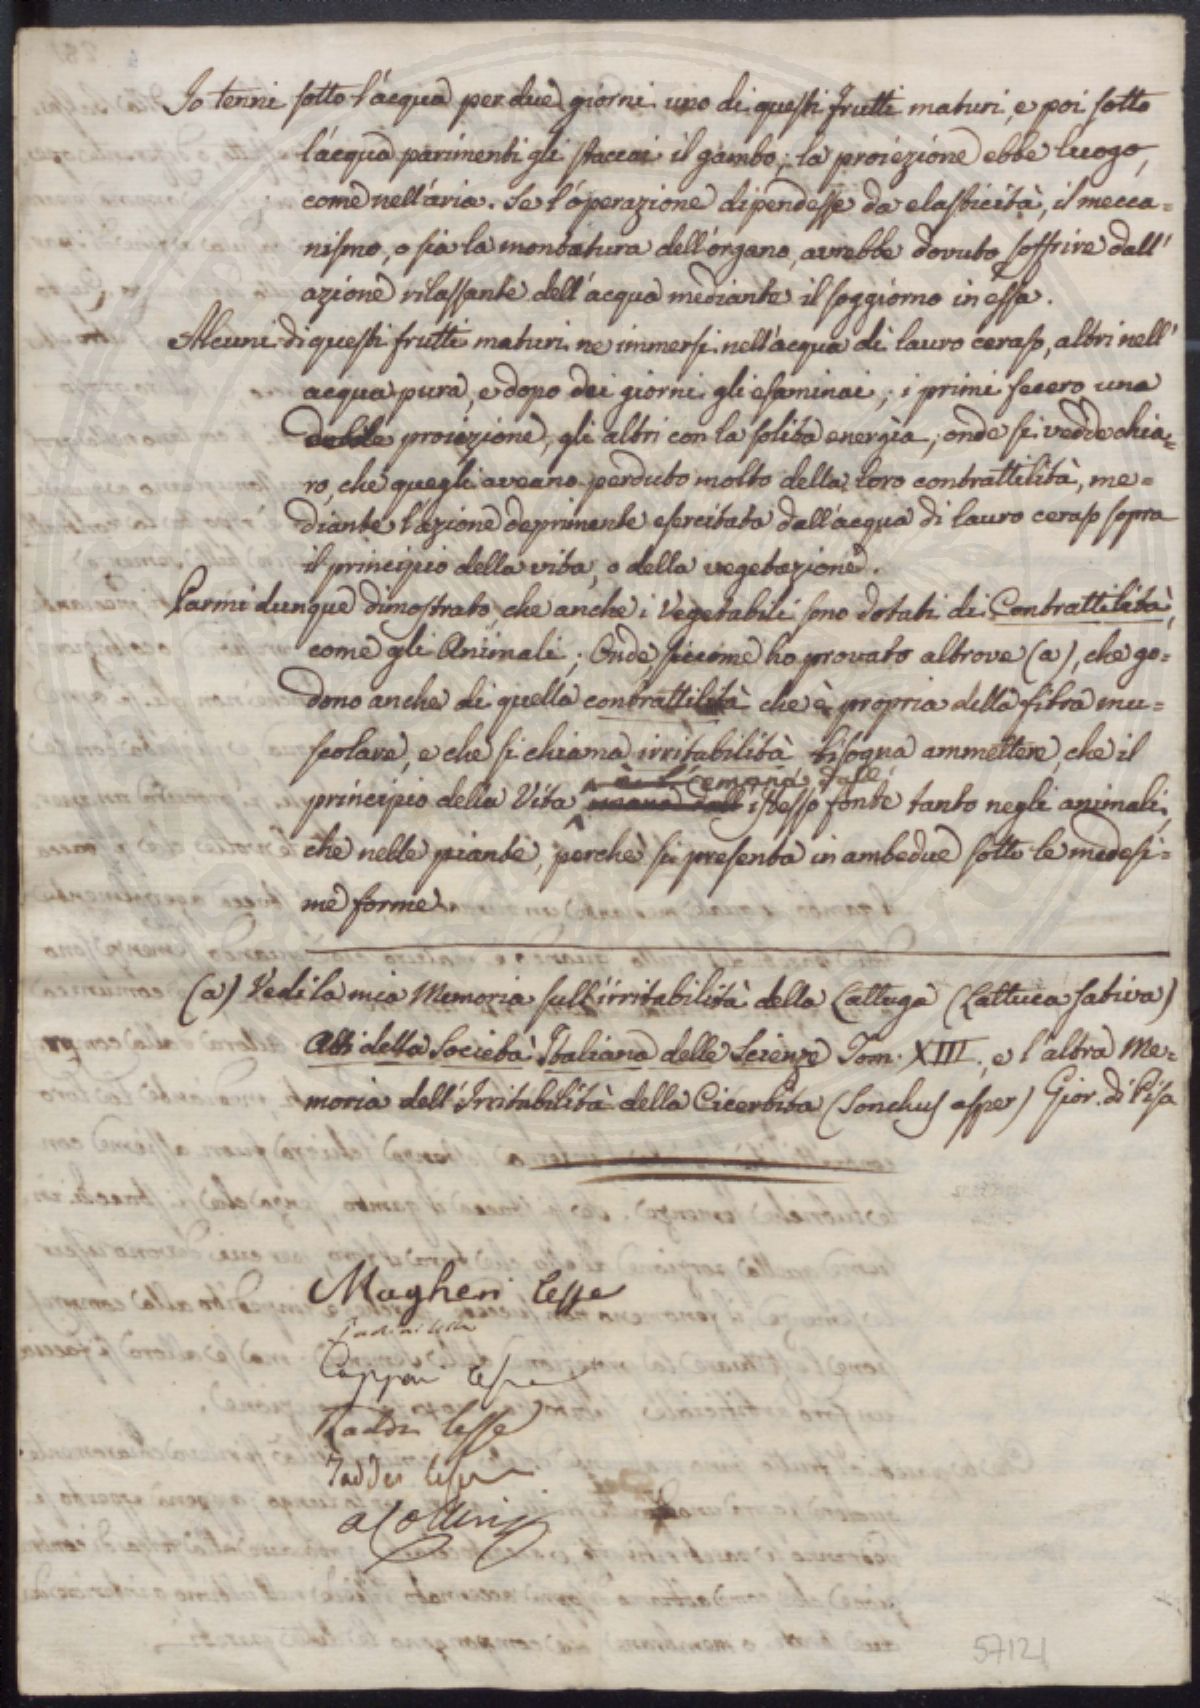 Io tenni sotto l'acqua per due giorni uno di questi frutti maturi, e poi sotto
l'acqua parimenti gli staccai il gambo; la proiezione ebbe luogo,
come nell'aria. Se l'operazione dipendesse da elasticità, il mecca=
nismo, o sia la montatura dell'organo, avrebbe dovuto soffrire dall'
azione rilassante dell'acqua mediante il soggiorno in essa.
Alcuni di questi frutti maturi ne immersi nell'acqua di lauro ceraso, altri nell'
acqua pura, e dopo dei giorni gli esaminai; i primi fecero una
debole proiezione, gli altri con la solita energia; onde si vedde chia=
ro, che quegli aveano perduto molto della loro contrattilità, me=
diante l'azione deprimente esercitata dall'acqua di lauro ceraso sopra
il principio della vita, o della vegetazione.
Parmi dunque dimostrato, che anche i Vegetabili sono dotati di Contrattilità,
come gli Animali; Onde, siccome ho provato altrove (a), che go=
dono anche di quella contrattilità che è propria della fibra mu=
scolare, e che si chiama irritabilità bisogna ammettere, che il
emana dall'
principio della Vita istesso fonte tanto negli animali,
che nelle piante, perchè si presenta in ambedue sotto le medesi=
me forme.
(a) Vedi la mia Memoria sull'irritabilità della Lattuga (Lattuca sativa)
Atti della Società Italiana delle Scienze Tom. XIII., e l'altra Me=
moria dell'Irritabilità della Cicerbita (Sonchus asper) Gior. di Pisa
Magheri lesse
Cappori lesse
Raddi lesse
Taddei lesse
a Collini
57121